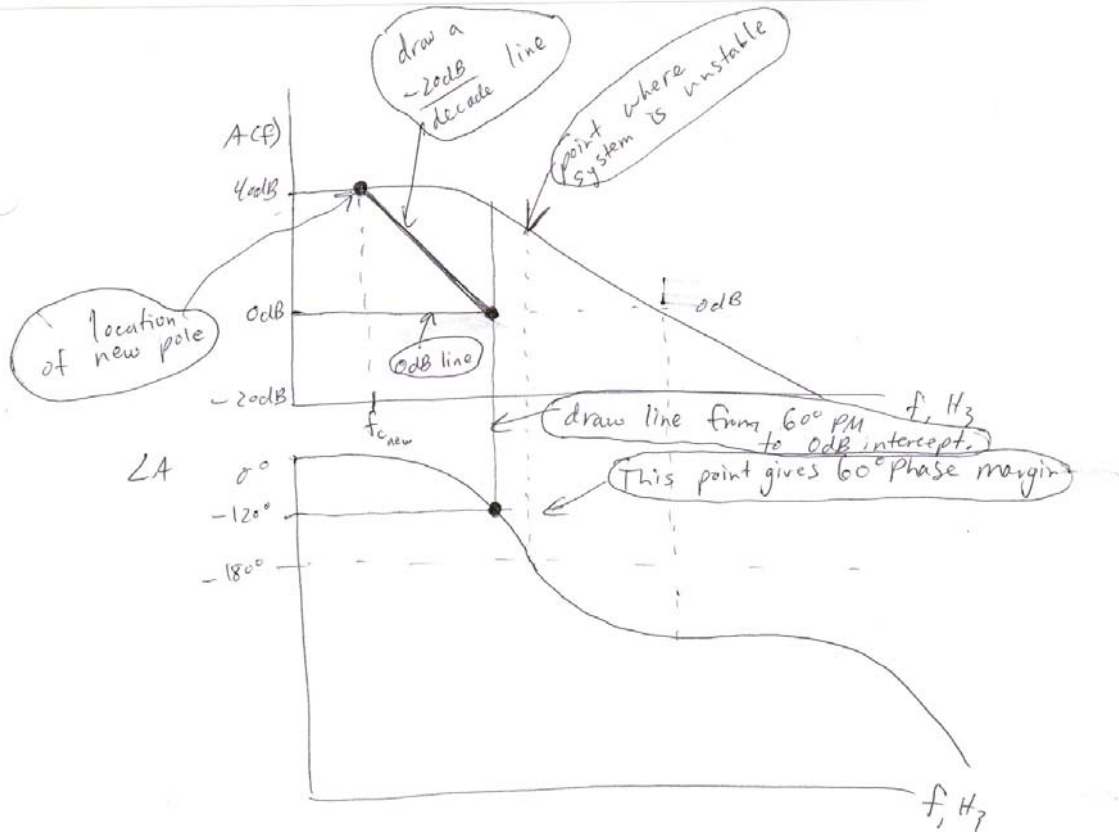 draw a
-20dB
decade line
point where
system is unstable
A(f)
40dB
location
of new pole
0dB
0dB
0dB line
-20dB
f, Hz
fc new
draw line from 60° PM
to 0dB intercept.
∠A
0°
This point gives 60° phase margin
-120°
-180°
f, Hz